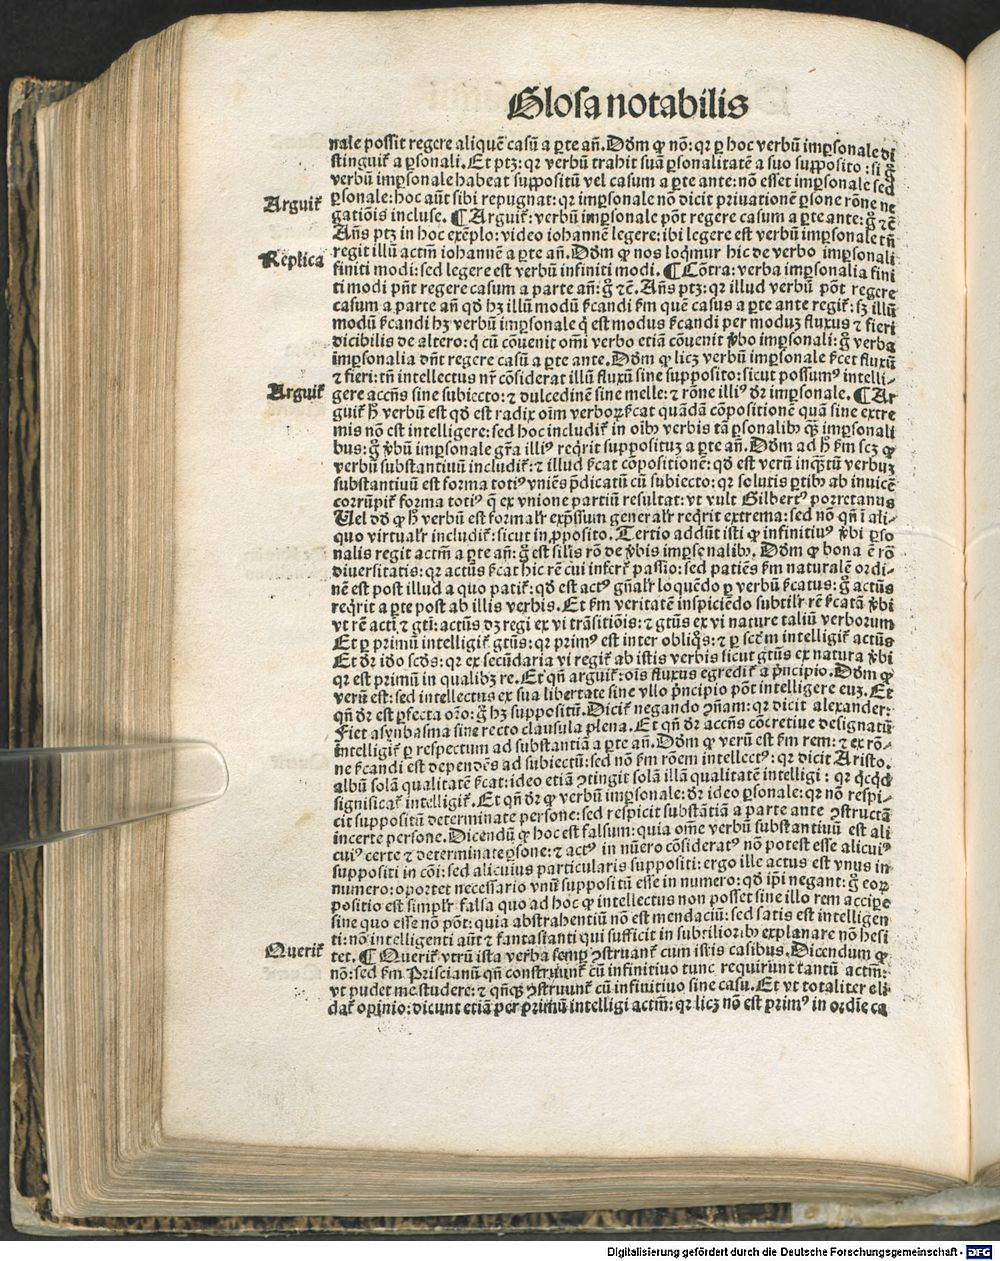 Glosa notabilis
nale possit regere aliquē casū a ꝑte añ. Dōm ꝙ nō: qꝛ ꝑ hoc verbū imꝑsonale di
stinguiť a ꝑsonali. Et ptꝫ: qꝛ verbū trahit suā ꝑsonalitatē a suo supposito: si g̊
verbū imꝑsonale habeat suppositū vel casum a ꝑte ante: nō esset imꝑsonale sed
ꝑsonale: hoc aūt sibi repugnat: qꝛ imꝑsonale nō dicit priuationē ꝑsone rōne ne
Arguiť
gatiōis incluse. ¶ Arguiť: verbū imꝑsonale pōt regere casum a ꝑte ante: g̊ ⁊c̄
Añs ptꝫ in hoc exēplo: video iohannē legere: ibi legere est verbū imꝑsonale tñ
regit illū actm̄ iohannē a ꝑte añ. Dōm ꝙ nos loqͥmur hic de verbo imꝑsonali
Replica
finiti modi: sed legere est verbū infiniti modi. ¶ Cōtra: verba imꝑsonalia fini
ti modi pñt regere casum a parte añ: g̊ ⁊c̄. Añs ptꝫ: qꝛ illud verbū pōt regere
casum a parte añ qd̄ hꝫ illū modū ſcandi ẜm quē casus a ꝑte ante regiť: sꝫ illū
modū ſcandi hꝫ verbū imꝑsonale qͥ est modus ſcandi per moduꝫ fluxus ⁊ fieri
dicibilis de altero: qͥ cū cōuenit om̄i verbo etiā cōuenit v̓bo imꝑsonali: g̊ verba
imꝑsonalia dñt regere casū a ꝑte ante. Dōm ꝙ licꝫ verbū imꝑsonale ſcet fluxū
⁊ fieri: tñ intellectus nr̄ cōsiderat illū fluxū sine supposito: sicut possumꝰ intelli-
Arguiť
gere accñs sine subiecto: ⁊ dulcedinē sine melle: ⁊ rōne illiꝰ dr̄ imꝑsonale. ¶ Ar
guiť h̄ verbū est qd̄ est radix oīm verboꝝ ſcat quādā cōpositionē quā sine extre
mis nō est intelligere: sed hoc includiť in oībꝰ verbis tā ꝑsonalibꝰ qͣꝫ imꝑsonali
bus: g̊ v̓bū imꝑsonale gr̄a illiꝰ reqͥrit supposituꝫ a ꝑte añ. Dōm ad h̄ ẜm scꝫ ꝙ
verbū substantiuū includiť: ⁊ illud ſcat cōpositionē: qd̄ est verū inqͣꝫtū verbuꝫ
substantiuū est forma totiꝰ vniēs p̄dicatū cū subiecto: qꝛ solutis ꝑtibꝰ ab inuicē
corrūpiť forma totiꝰ q̄ ex vnione partiū resultat: vt vult Gilbertꝰ porretanus
Uel dō ꝙ h̄ verbū est formalr̄ exp̄ssum generalr̄ reqͥrit extrema: sed nō qñ ī ali-
quo virtualr̄ includiť: sicut in ꝓposito. Tertio addūt isti ꝙ infinitiuꝰ v̓bi ꝑso
nalis regit actm̄ a ꝑte añ: g̊ est silis rō de v̓bis imꝑsonalibꝰ. Dōm ꝙ bona ē rō
diuersitatis: qꝛ actus ſcat hic rē cui inferť passio: sed patiēs ẜm naturalē ordi-
nē est post illud a quo patiť: qd̄ est actꝰ gñalr̄ loquēdo ꝑ verbū ſcatus: g̊ actus
reqͥrit a ꝑte post ab illis verbis. Et ẜm veritatē inspiciēdo subtilr̄ rē ſcatā v̓bi
vt rē acti ⁊ gtū: actus dꝫ regi ex vi trāsitiōis: ⁊ gtūs ex vi nature taliū verborum
Et ꝑ primū intelligiť gtūs: qꝛ primꝰ est inter obliqͦs: ⁊ ꝑ scdm̄ intelligiť actūs
Et dr̄ iō scds: qꝛ ex secūdaria vi regiť ab istis verbis sicut gtūs ex natura v̓bi
qꝛ est primū in qualibꝫ re. Et qñ arguiť: oīs fluxus egrediť a pͥncipio. Dōm ꝙ
verū est: sed intellectus ex sua libertate sine vllo pͥncipio pōt intelligere euꝫ. Et
qñ dr̄ est ꝑfecta or̄o: g̊ hꝫ suppositū. Diciť negando ꝯñam: qꝛ dicit alexander:
Fiet asynbasma sine recto clausula plena. Et qñ dr̄ accñs cōcretiue designatū
intelligiť ꝑ respectum ad substantiā a ꝑte añ. Dōm ꝙ verū est ẜm rem: ⁊ ex rō-
ne ſcandi est dependēs ad subiectū: sed nō ẜm rōem intellectꝰ: qꝛ dicit Aristo.
albū solā qualitatē ſcat: ideo etiā ꝯtingit solā illā qualitatē intelligi: qꝛ qͥcqͥd
significať intelligiť. Et qñ dr̄ ꝙ verbū imꝑsonale: dr̄ ideo ꝑsonale: qꝛ nō respi-
cit suppositū determinate persone: sed respicit substātiā a parte ante ꝯstructā
incerte persone. Dicendū ꝙ hoc est falsum: quia om̄e verbū substantiuū est ali
cuiꝰ certe ⁊ determinate ꝑsone: ⁊ actꝰ in nūero cōsideratꝰ nō potest esse alicuiꝰ
suppositi in cōi: sed alicuius particularis suppositi: ergo ille actus est vnus in
numero: oportet necessario vnū suppositū esse in numero: qd̄ ip̄i negant: g̊ eoꝝ
positio est simplr̄ falsa quo ad hoc ꝙ intellectus non posset sine illo rem accipe
sine quo esse nō pōt: quia abstrahentiū nō est mendaciū: sed satis est intelligen
ti: nō intelligenti aūt ⁊ fantasianti qui sufficit in subtilioribꝰ explanare nō hesi
Queriť
tet. ¶ Queriť vtrū ista verba semꝑ ꝯstruanť cum istis casibus. Dicendum ꝙ
nō: sed ẜm Priscianū qñ construunť cū infinitiuo tunc requirunt tantū actm̄:
vt pudet me studere: ⁊ qñqͣꝫ ꝯstruunť cū infinitiuo sine casu. Et vt totaliter eli
dať opinio: dicunt etiā per primū intelligi actm̄: qꝛ licꝫ nō est primꝰ in ordīe ca
Digitalisierung gefördert durch die Deutsche Forschungsgemeinschaft - DFG